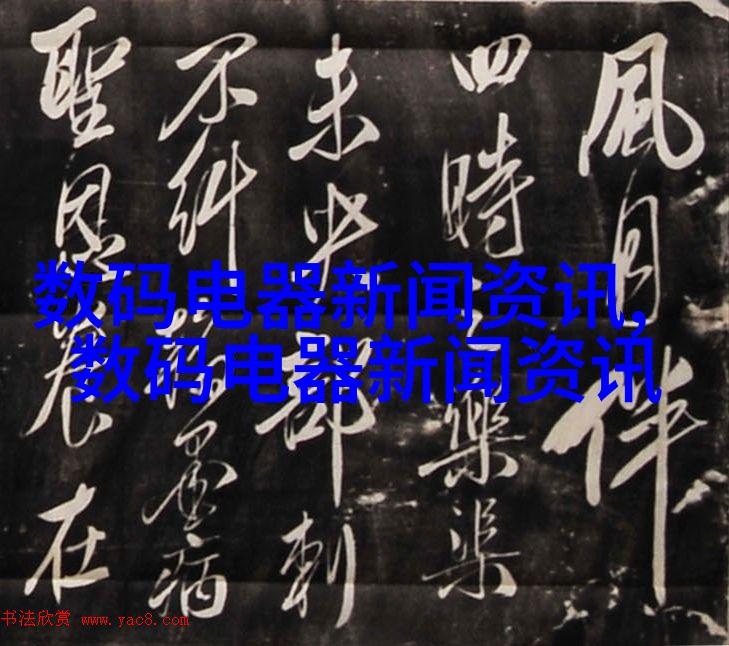 風月伴
四時樂渠
未央部刺
不糾墨病
聖恩在
数码电器新闻资讯,
数码电器新闻资讯
书法欣赏 www.yac8.com